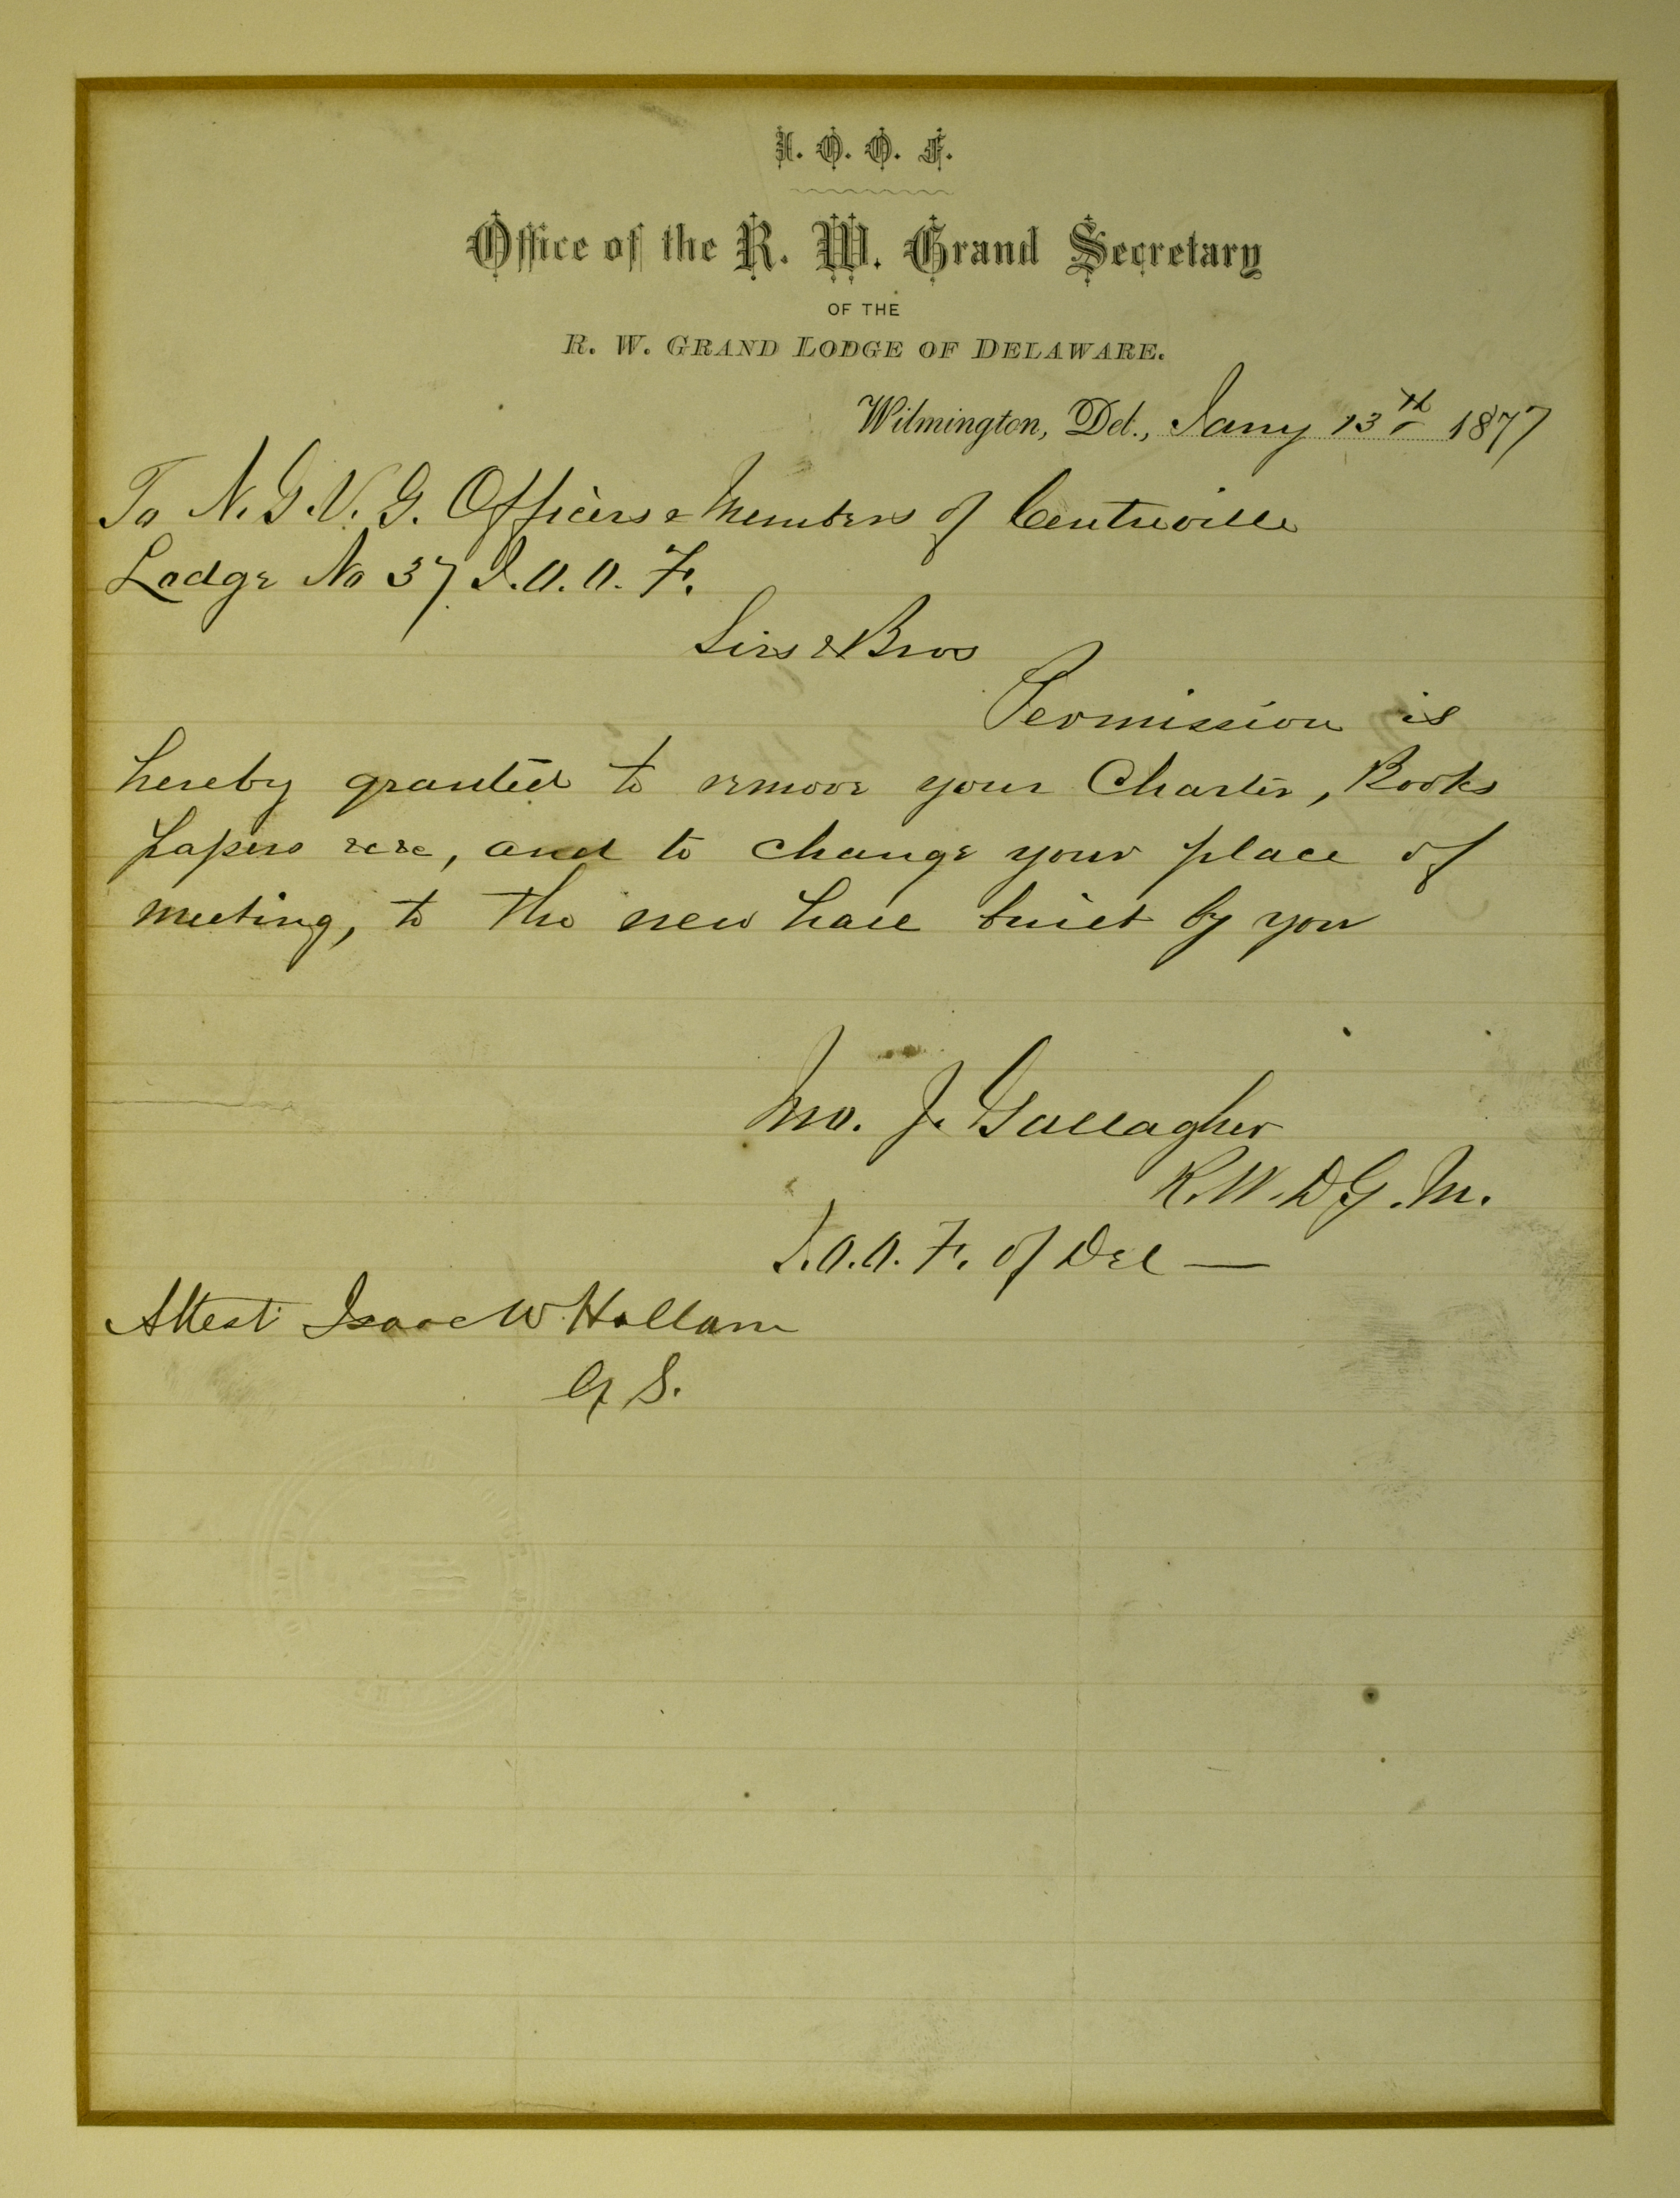 I. O. O. F.
Office of the R. W. Grand Secretary
OF THE
R. W. GRAND LODGE OF DELAWARE.
Wilmington, Del., Jany 13th 1877
To N. G. V. G. Officers & Members of Centreville
Lodge No 37 I. O. O. F.
Sirs & Bros
Permission is
hereby granted to remove your Charter, Books
papers &c &c, and to change your place of
meeting, to the new hall built by you
Jno. J. Gallagher
R. W. D G. M.
I. O. O. F. of Del —
Attest Isaac W Hallam
G S.